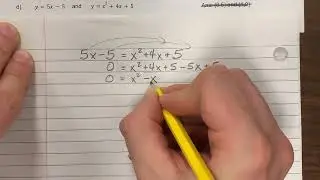 d). y = 5x - 5 and y = x² + 4x + 5
5x - 5 = x² + 4x + 5
0 = x² + 4x + 5 - 5x + 5
0 = x² - x